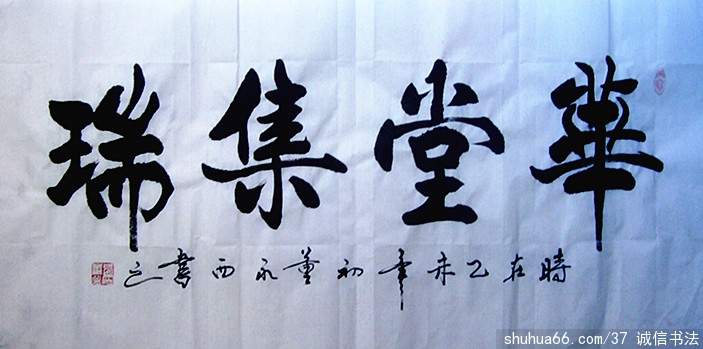 華堂集瑞
時在乙未年初董永西書之
shuhua66.com/37 诚信书法